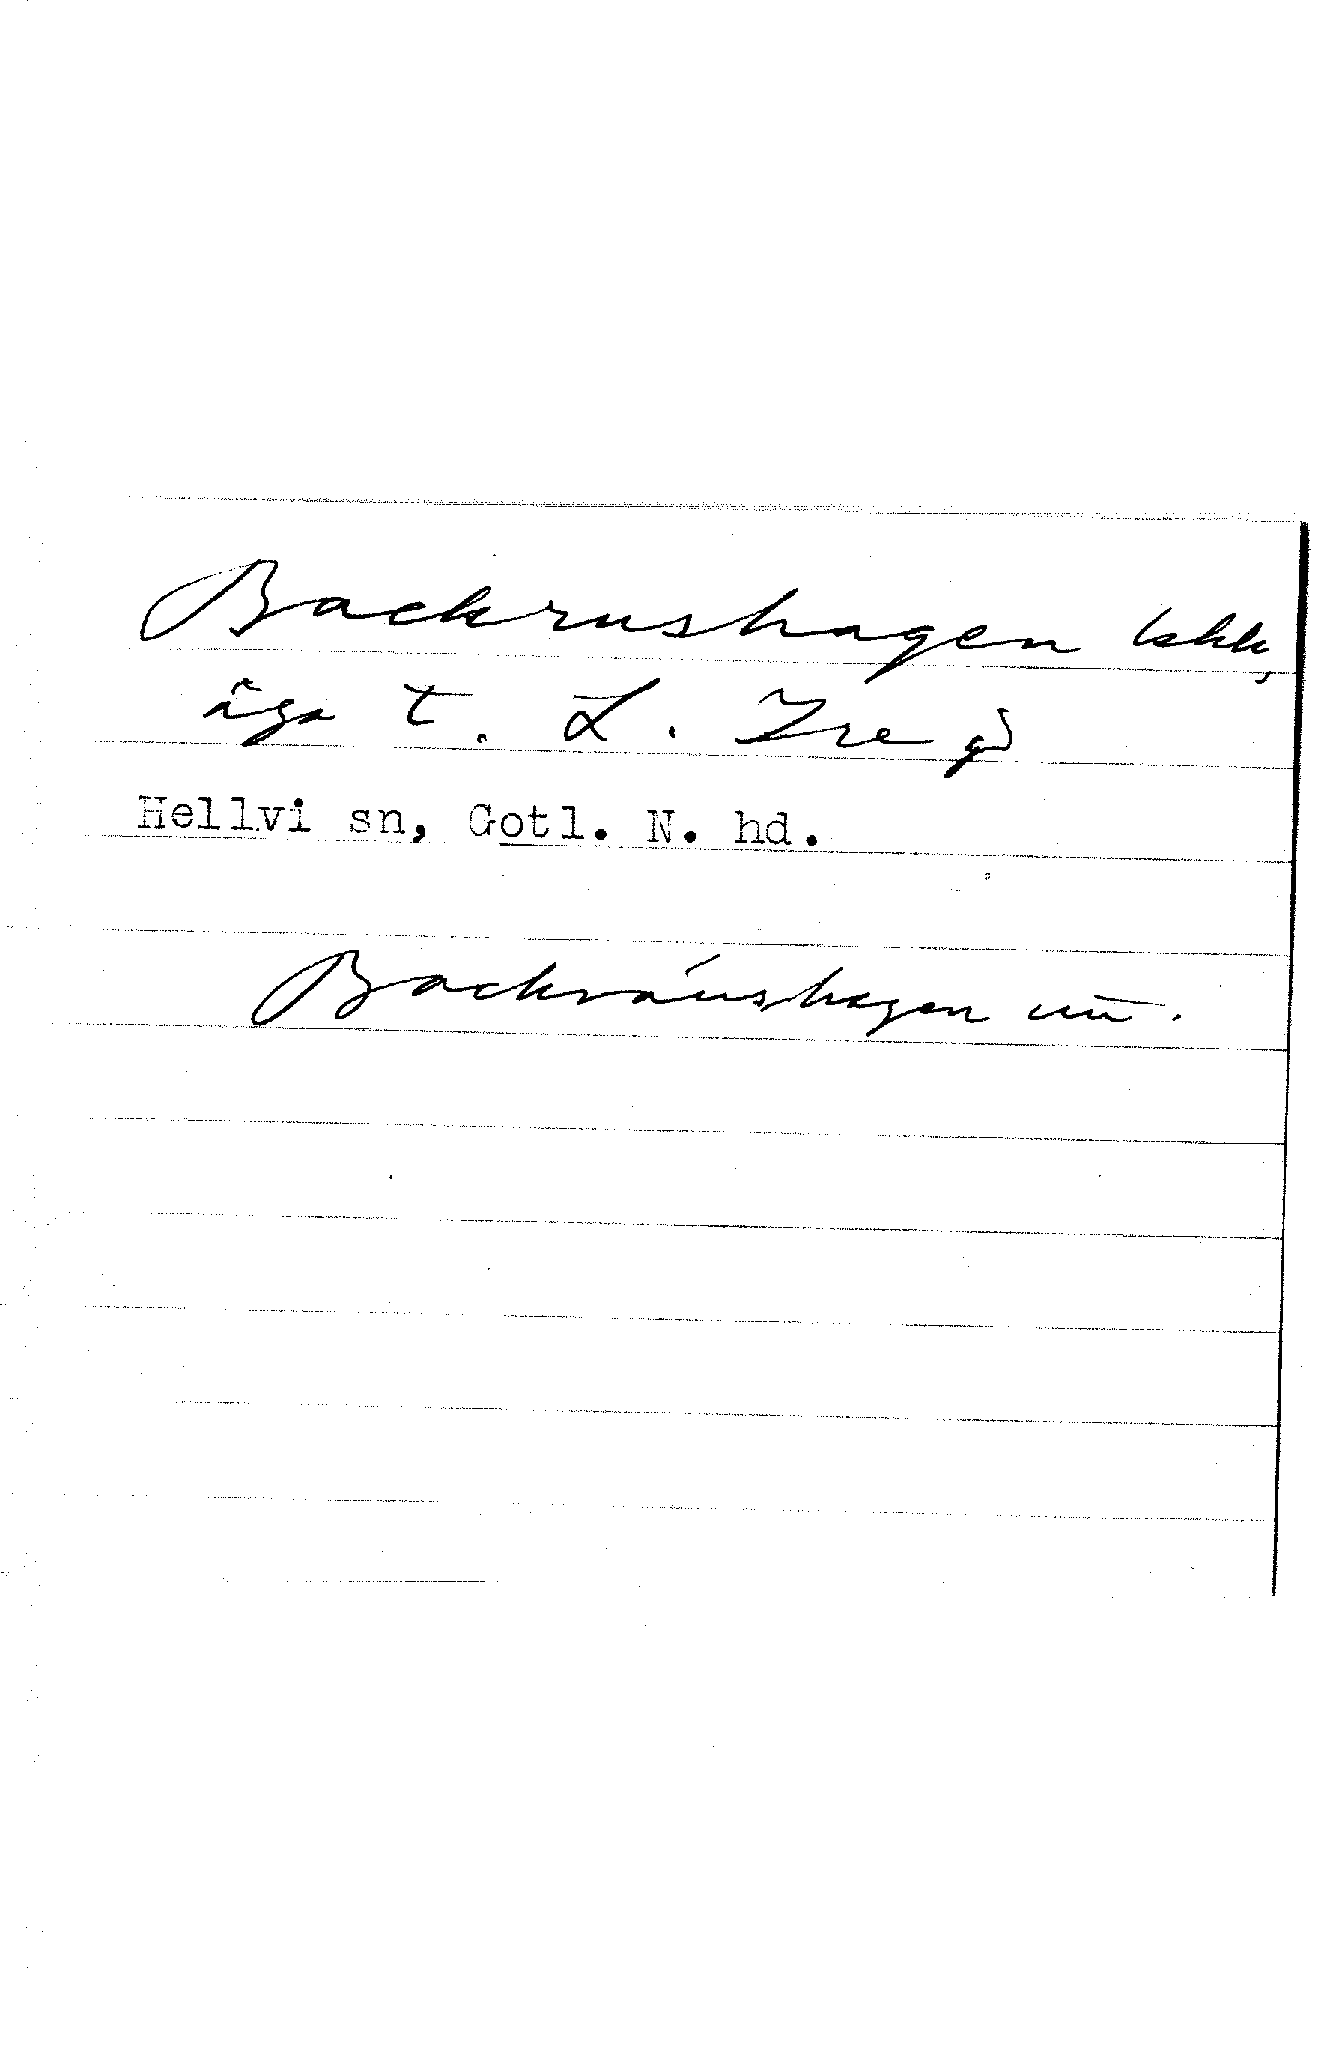 Backrushagen
äga t. L. Ire gd
Hellvi sn, Gotl. N. hd.
Backráushagen